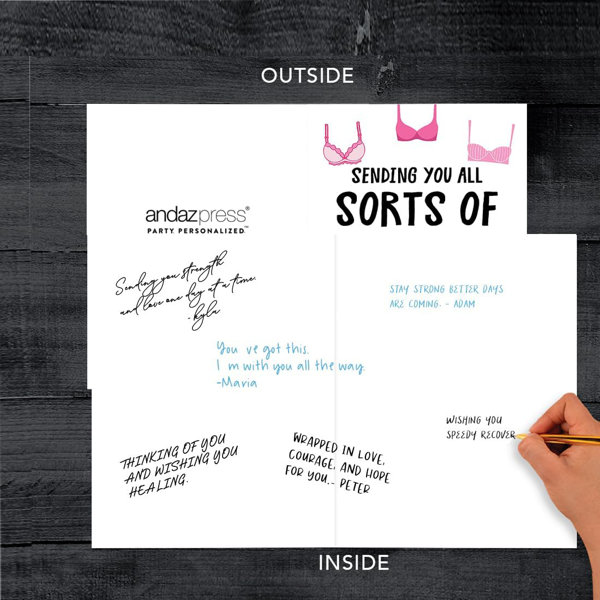 OUTSIDE
andazpress®
PARTY PERSONALIZED™
SENDING YOU ALL
SORTS OF
Sending you strength
and love one day at a time.
-Kyla
STAY STRONG BETTER DAYS
ARE COMING. - ADAM
You ve got this.
I m with you all the way.
-Maria
WISHING YOU
SPEEDY RECOVER
THINKING OF YOU
AND WISHING YOU
HEALING.
WRAPPED IN LOVE,
COURAGE, AND HOPE
FOR YOU.- PETER
INSIDE